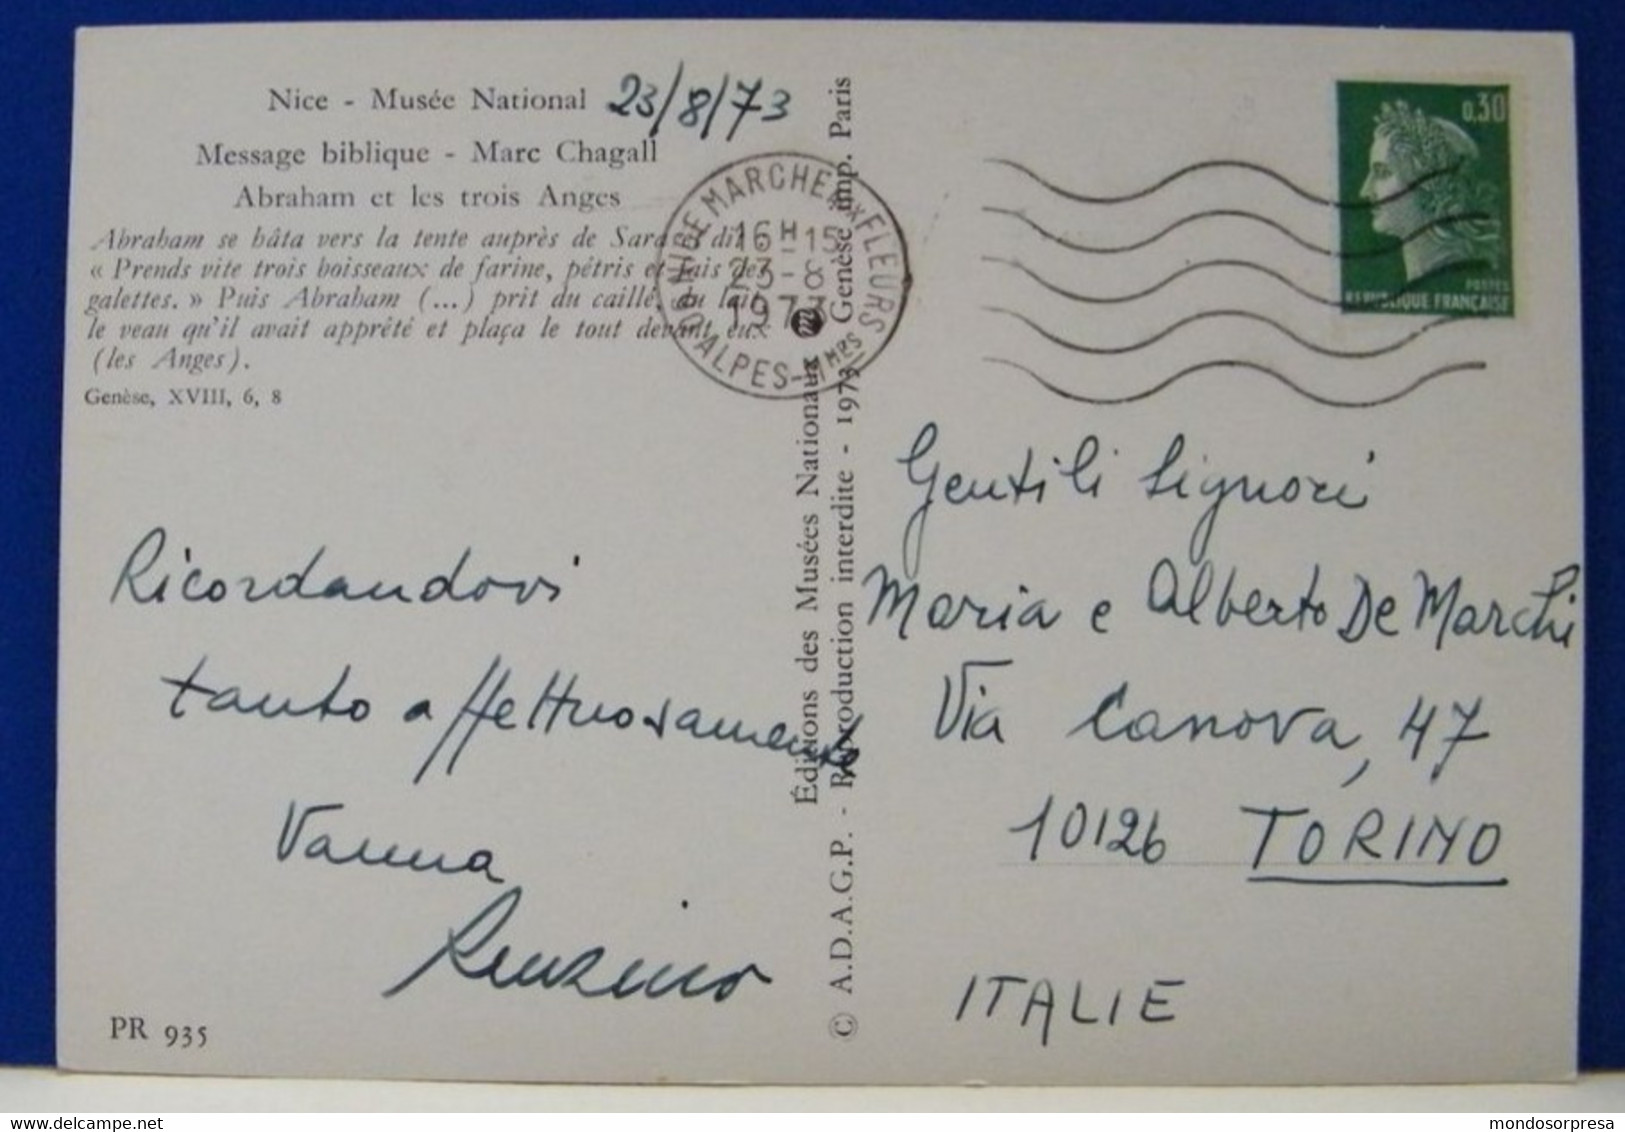 Nice - Musée National 23/8/73
Message biblique - Marc Chagall
Abraham et les trois Anges
Abraham se hâta vers la tente auprès de Sara et dit :
« Prends vite trois boisseaux de farine, pétris et fais des
galettes. » Puis Abraham (...) prit du caillé, du lait,
le veau qu'il avait apprêté et plaça le tout devant eux
(les Anges).
Genèse, XVIII, 6, 8
Ricordandovi
tanto affettuosamente
Vanna
Renzino
PR 935
Éditions des Musées Nationaux
© A.D.A.G.P. - Reproduction interdite - 1973 Genèse imp. Paris
MARCHE AUX FLEURS
16H15
23-8
1973
ALPES-MMES
0,30
POSTES
REPUBLIQUE FRANÇAISE
Gentili Signori
Maria e Alberto De Marchi
Via Canova, 47
10126 TORINO
ITALIE
mondosorpresa